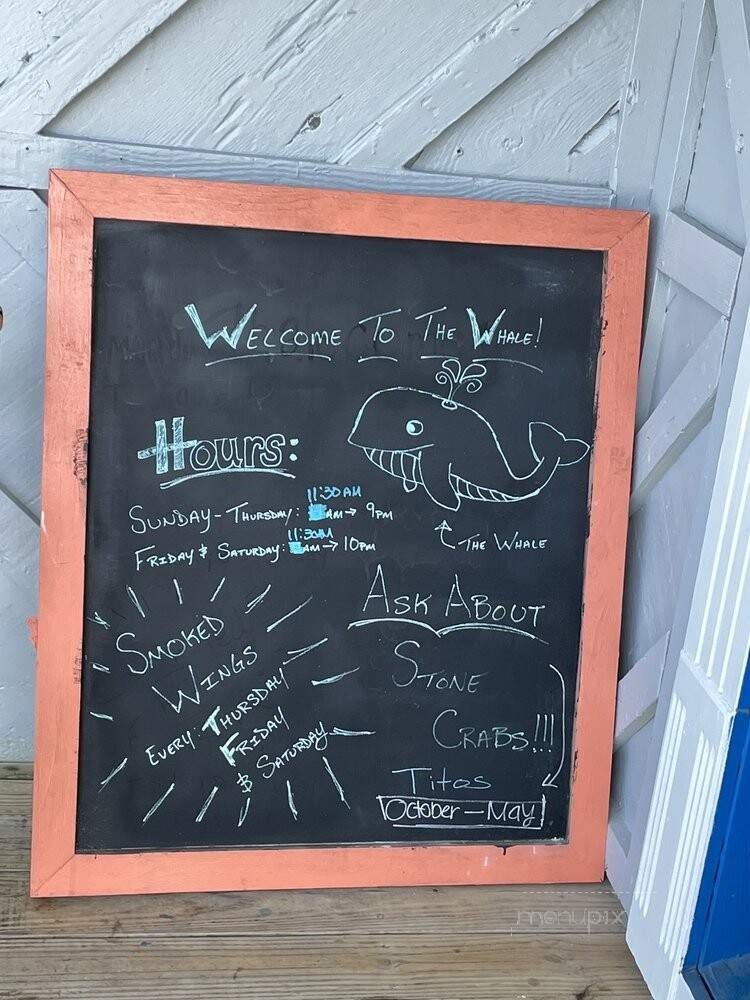 WELCOME TO THE WHALE!
HOURS:
11:30AM
SUNDAY - THURSDAY: AM → 9PM
11:30AM
FRIDAY & SATURDAY: AM → 10PM
THE WHALE
SMOKED
WINGS
EVERY: THURSDAY
FRIDAY
& SATURDAY
ASK ABOUT
STONE
CRABS!!!
Titos
October - May
menupix